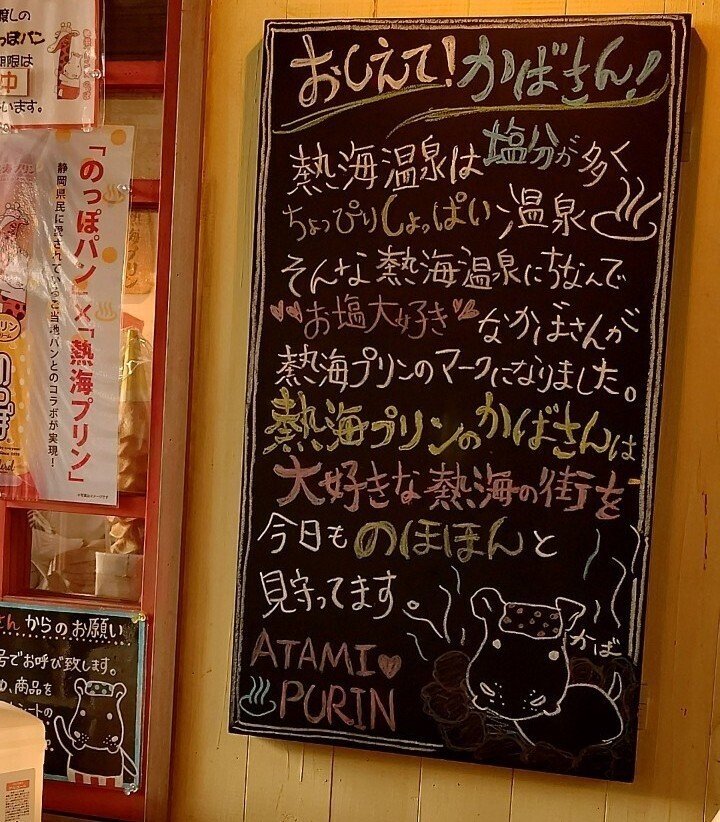 渡しの
っぽパン
期限は
中
います。
「のっぽパン」×「熱海プリン」
静岡県民に愛されているご当地パンとのコラボが実現！
おしえて！かばさん！
熱海温泉は塩分が多く
ちょっぴりしょっぱい温泉♨
そんな熱海温泉にちなんで
お塩大好きなかばさんが
熱海プリンのマークになりました。
熱海プリンのかばさんは
大好きな熱海の街を
今日ものほほんと
見守ってます。
かば
ATAMI
♨PURIN
さんからのお願い
号でお呼び致します。
、商品を
シートの